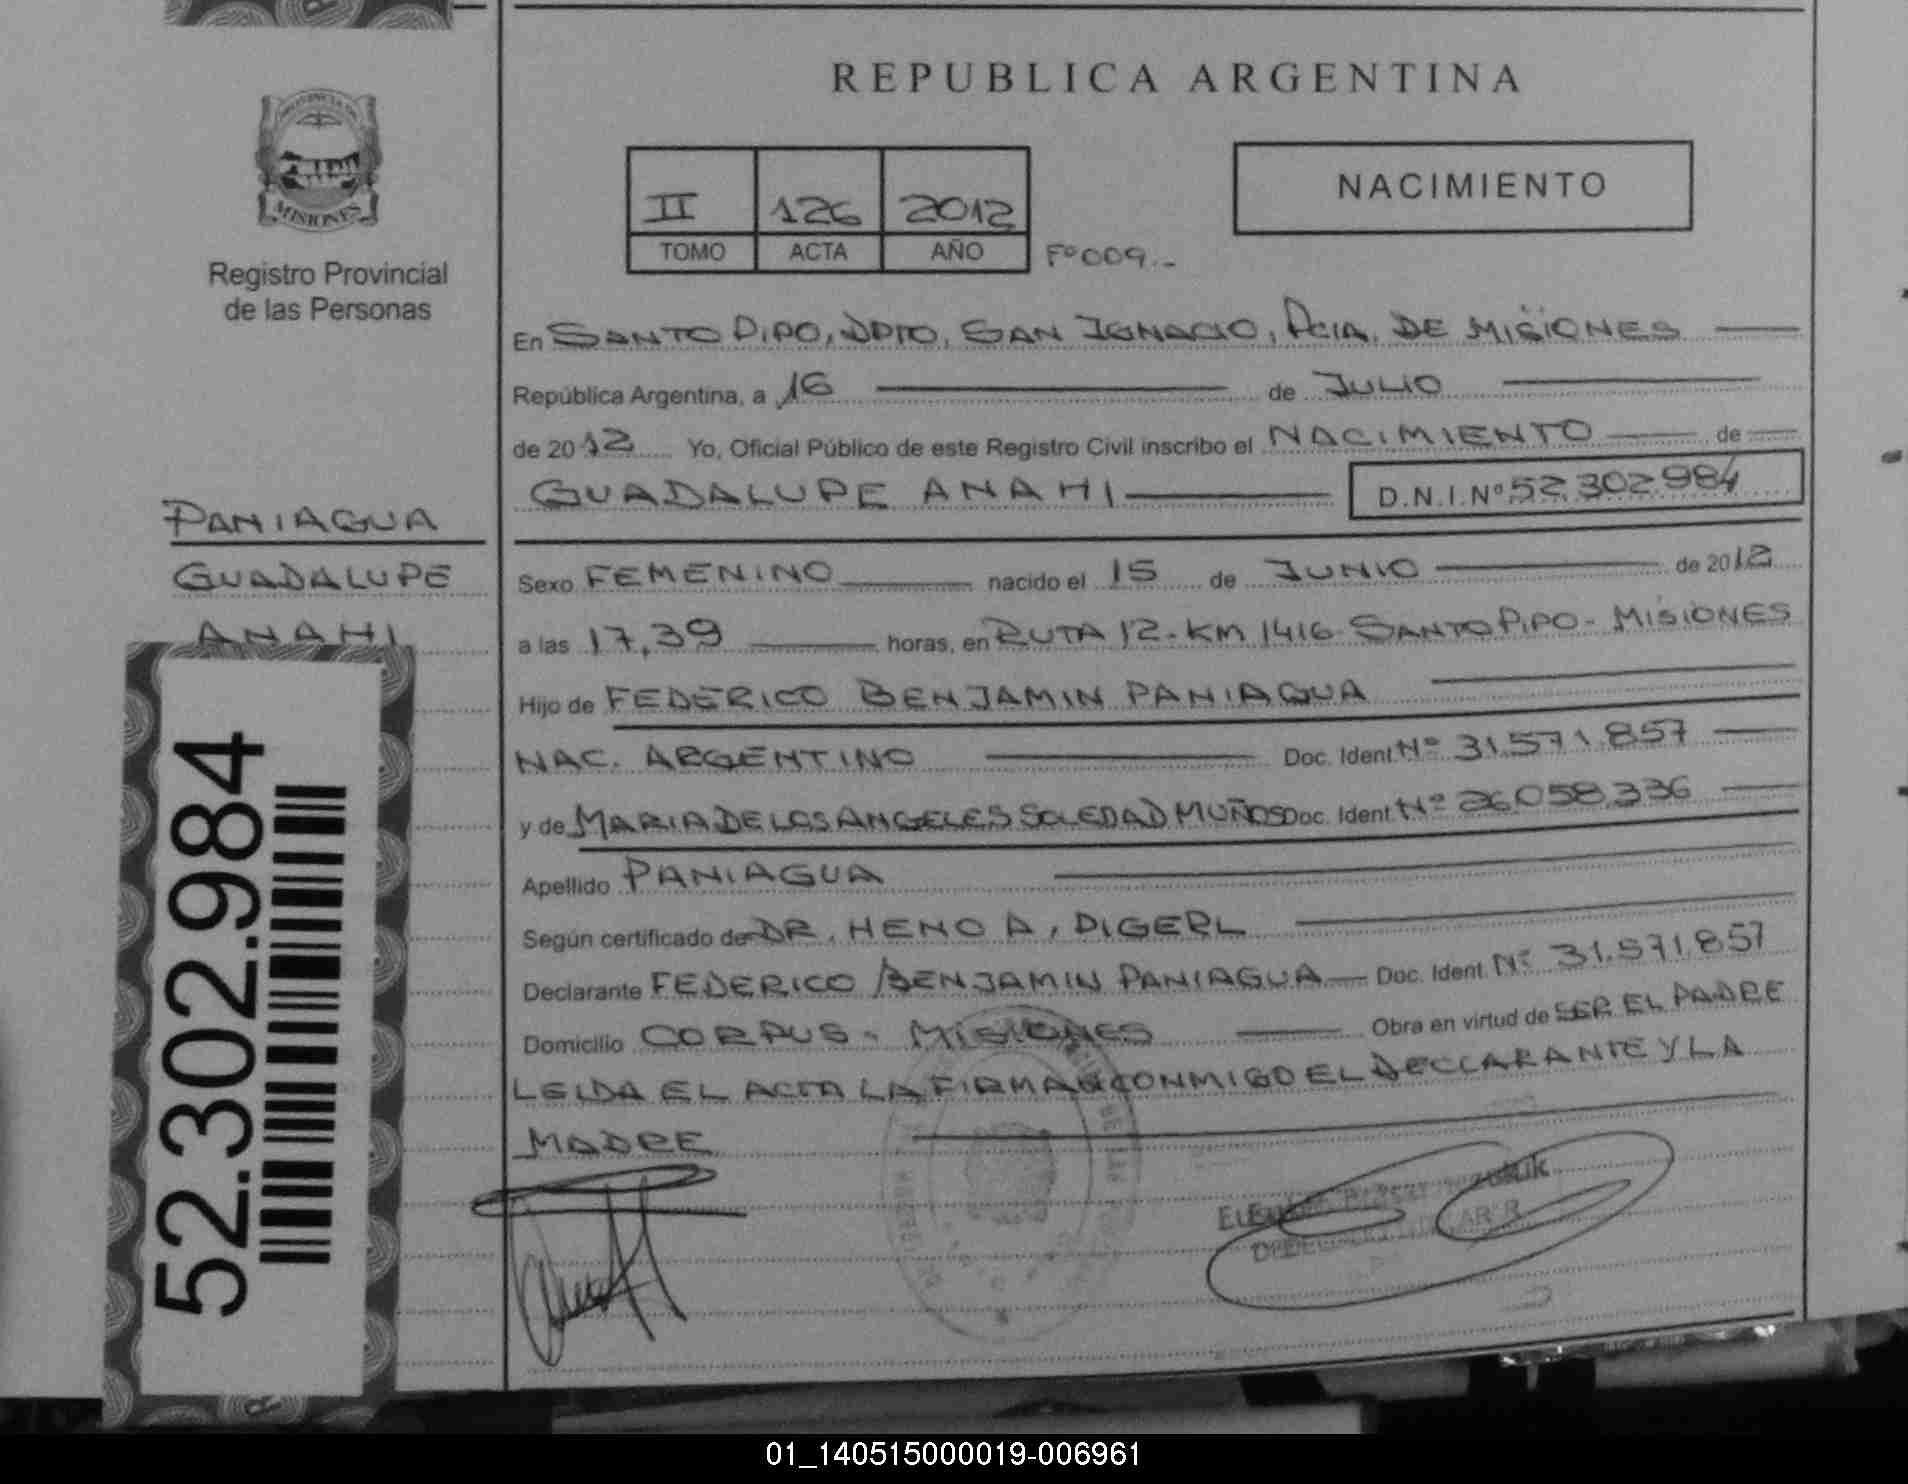 REPUBLICA ARGENTINA
PROVINCIA DE
MISIONES
Registro Provincial
de las Personas
II 126 2012
TOMO ACTA AÑO
Fº 009.-
NACIMIENTO
En SANTO PIPO, DPTO. SAN IGNACIO, PCIA. DE MISIONES
República Argentina, a 16 de JULIO
de 2012 Yo, Oficial Público de este Registro Civil inscribo el NACIMIENTO de
GUADALUPE ANAHI D.N.I. Nº 52.302.984
PANIAGUA
GUADALUPE
ANAHI
Sexo FEMENINO nacido el 15 de JUNIO de 2012
a las 17,39 horas, en RUTA 12-KM 1416-SANTO PIPO-MISIONES
Hijo de FEDERICO BENJAMIN PANIAGUA
NAC. ARGENTINO Doc. Ident. Nº 31.571.857
y de MARIA DE LOS ANGELES SOLEDAD MUÑOS Doc. Ident. Nº 26.058.336
Apellido PANIAGUA
Según certificado de DR. HENO A, DIGERL
Declarante FEDERICO BENJAMIN PANIAGUA Doc. Ident. Nº 31.571.857
Domicilio CORPUS - MISIONES Obra en virtud de SER EL PADRE
LEIDA EL ACTA LA FIRMAN CONMIGO EL DECLARANTE Y LA
MADRE
52.302.984
01_140515000019-006961